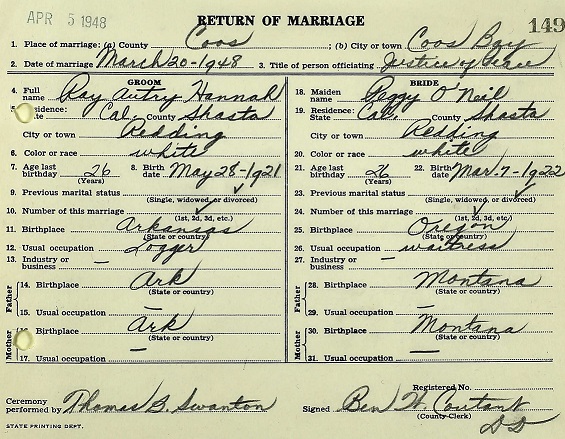 APR 5 1948
RETURN OF MARRIAGE
149
1. Place of marriage: (a) County Coos ; (b) City or town Coos Bay
2. Date of marriage March 20-1948 3. Title of person officiating Justice of Peace
GROOM
4. Full name Ray Autry Hannah
5. Residence: State Cal. County Shasta
City or town Redding
6. Color or race white
7. Age last birthday 26 (Years) 8. Birth date May 28-1921
9. Previous marital status ✓ (Single, widowed or divorced)
10. Number of this marriage ✓ (1st, 2d, 3d, etc.)
11. Birthplace Arkansas (State or country)
12. Usual occupation Logger
13. Industry or business —
Father
14. Birthplace Ark (State or country)
15. Usual occupation —
Mother
16. Birthplace Ark (State or country)
17. Usual occupation —
BRIDE
18. Maiden name Peggy O'Neil
19. Residence: State Cal. County Shasta
City or town Redding
20. Color or race white
21. Age last birthday 26 (Years) 22. Birth date Mar-7-1922
23. Previous marital status ✓ (Single, widowed, or divorced)
24. Number of this marriage ✓ (1st, 2d, 3d, etc.)
25. Birthplace Oregon (State or country)
26. Usual occupation waitress
27. Industry or business —
Father
28. Birthplace Montana (State or country)
29. Usual occupation —
Mother
30. Birthplace Montana (State or country)
31. Usual occupation —
Ceremony performed by Thomas B. Swanton
Registered No.
Signed Ben W. Coutant
(County Clerk)
STATE PRINTING DEPT.